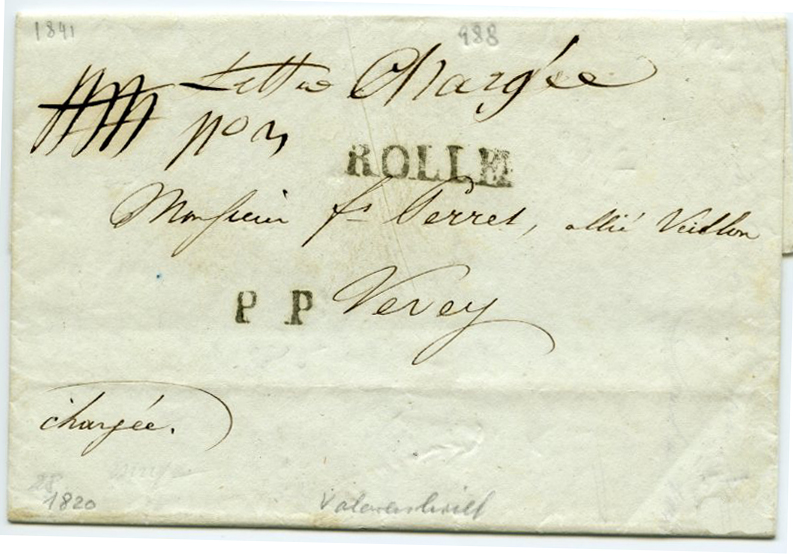 1841 988
Lettre Chargée
No 3
ROLLE
Monsieur fs Perret, allié Veillon
P P Vevey
chargée.
28
1820